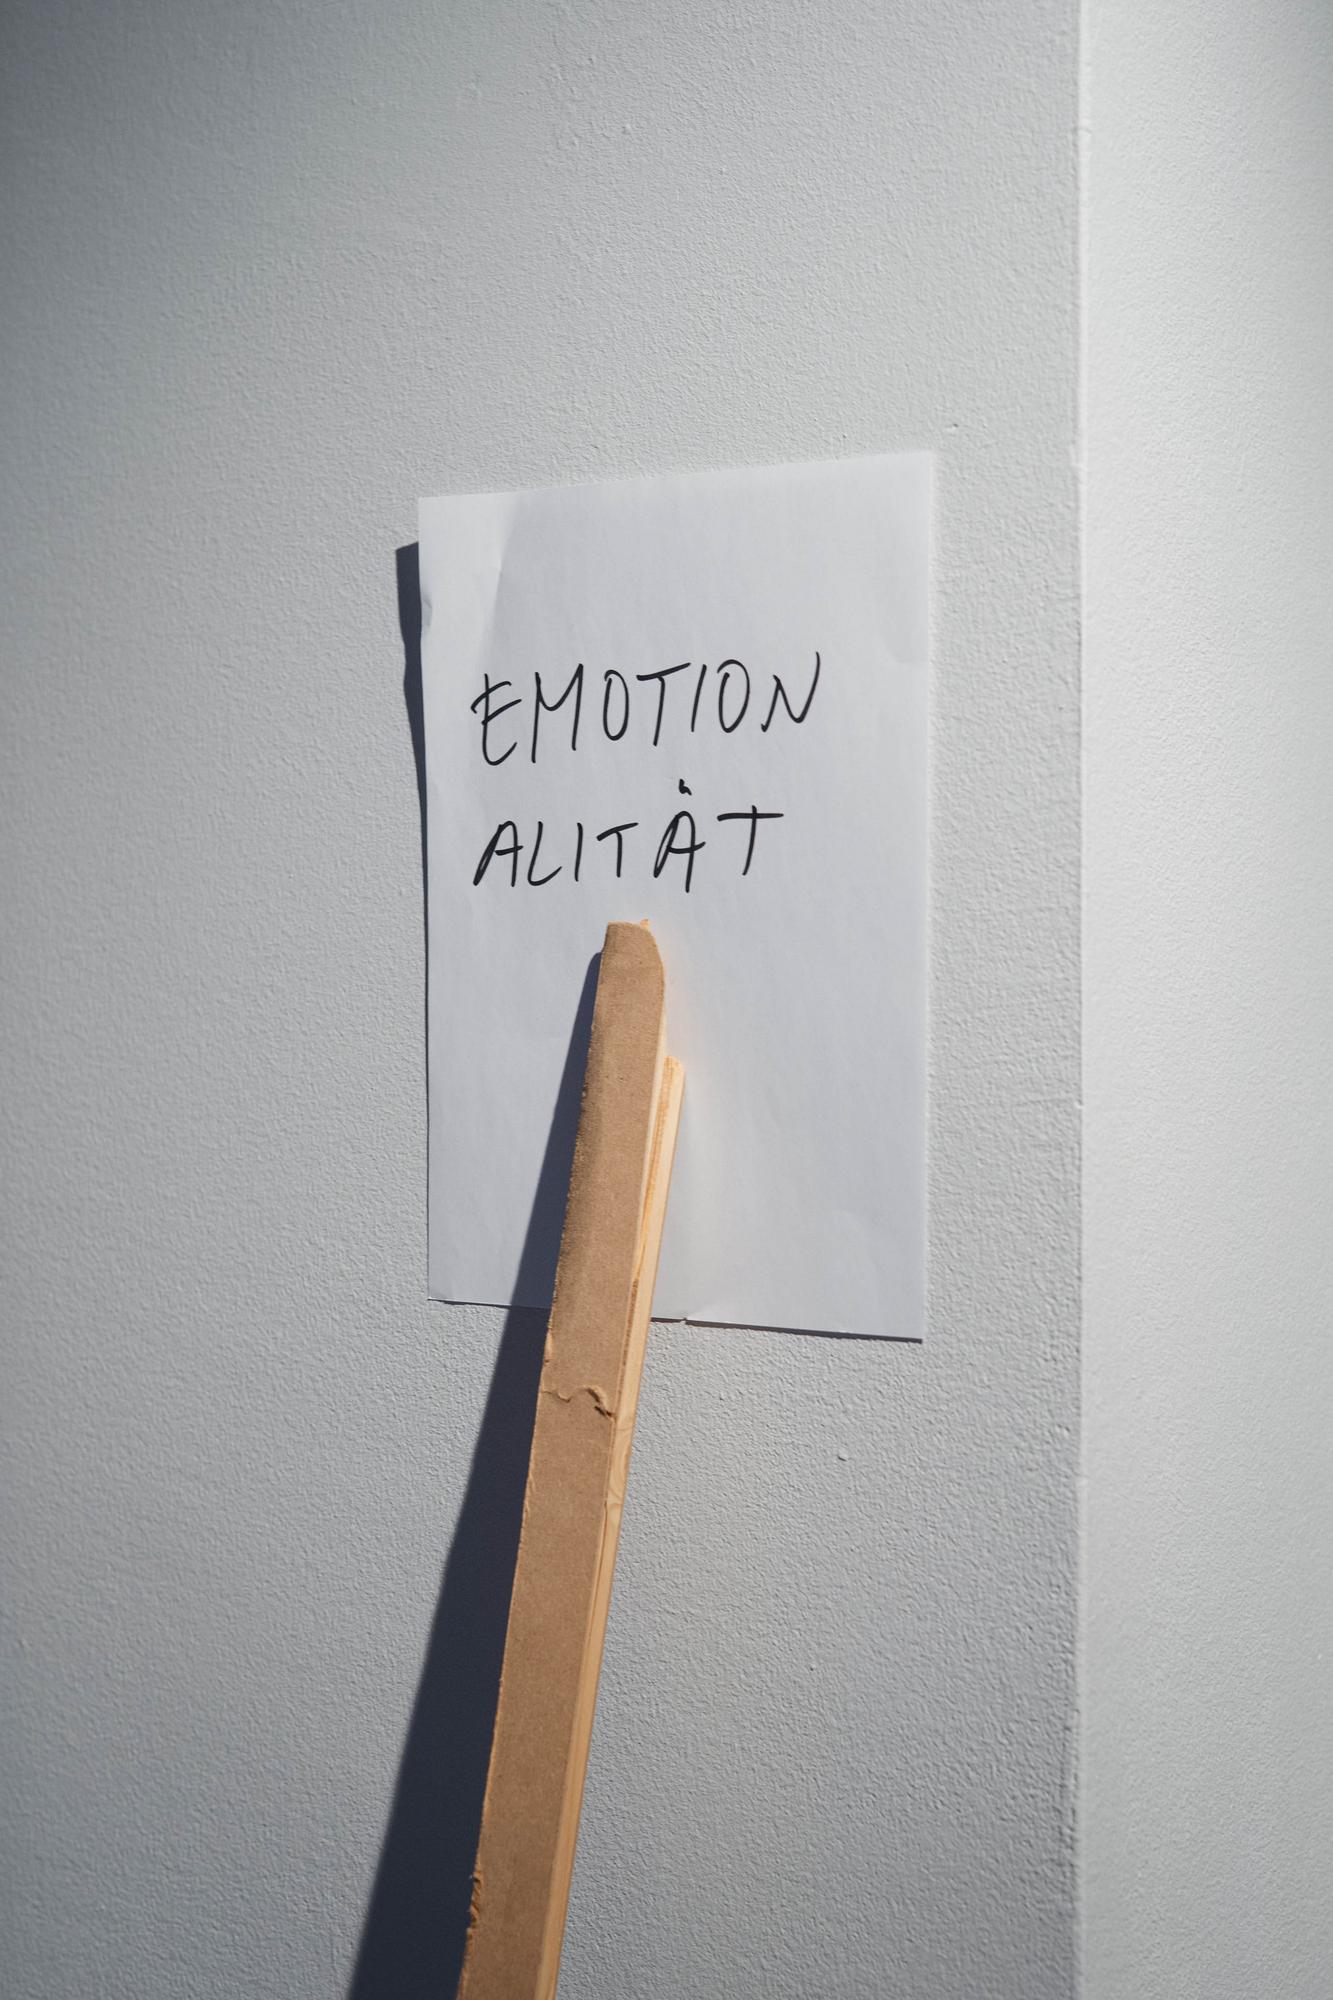 EMOTION
ALITÄT